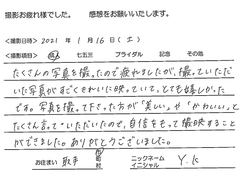 撮影お疲れ様でした。　感想をお願いいたします。
<撮影日時> 2021年 1月 16日 (土)
<撮影項目> 成人 七五三 ブライダル 記念 その他
たくさんの写真を撮ったので疲れましたが、撮っていただ
いた写真がすごくきれいに映っていて、とても嬉しかった
です。写真を撮って下さった方が"美しい"や"かわいい"と
たくさん言っていただいたので、自信をもって撮影すること
ができました。ありがとうございました。
お住まい 取手 市 町 村 ニックネーム イニシャル Y.K